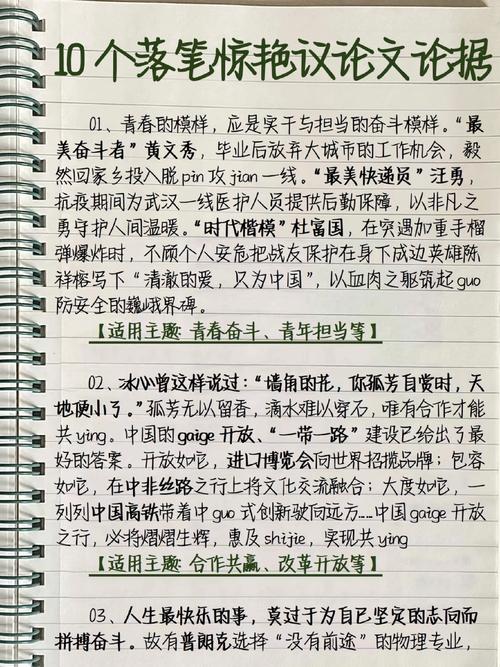 10个落笔惊艳议论文论据
01、青春的模样，应是实干与担当的奋斗模样。“最
美奋斗者”黄文秀，毕业后放弃大城市的工作机会，毅
然回家乡投入脱pin攻jian一线。“最美快递员”汪勇，
抗疫期间为武汉一线医护人员提供后勤保障，以非凡之
勇守护人间温暖。“时代楷模”杜富国，在突遇加重手榴
弹爆炸时，不顾个人安危把战友保护在身下戍边英雄陈
祥榕写下“清澈的爱，只为中国”，以血肉之躯筑起guo
防安全的巍峨界碑。
【适用主题 青春奋斗、青年担当等】
02、冰心曾这样说过：“墙角的花，你孤芳自赏时，天
地便小了。”孤芳无以留香，滴水难以穿石，唯有合作才能
共ying。中国的gaige开放、“一带一路”建设已给出了最
好的答案。开放如它，进口博览会向世界招揽品牌；包容
如它，在中非丝路之行上将文化交流融合；大度如它，一
列列中国高铁带着中guo式创新驶向远方……中国gaige开放
之行，必将熠熠生辉，惠及shijie，实现共ying
【适用主题 合作共赢、改革开放等】
03、人生最快乐的事，莫过于为自己坚定的志向而
拼搏奋斗。故有普朗克选择“没有前途”的物理专业，